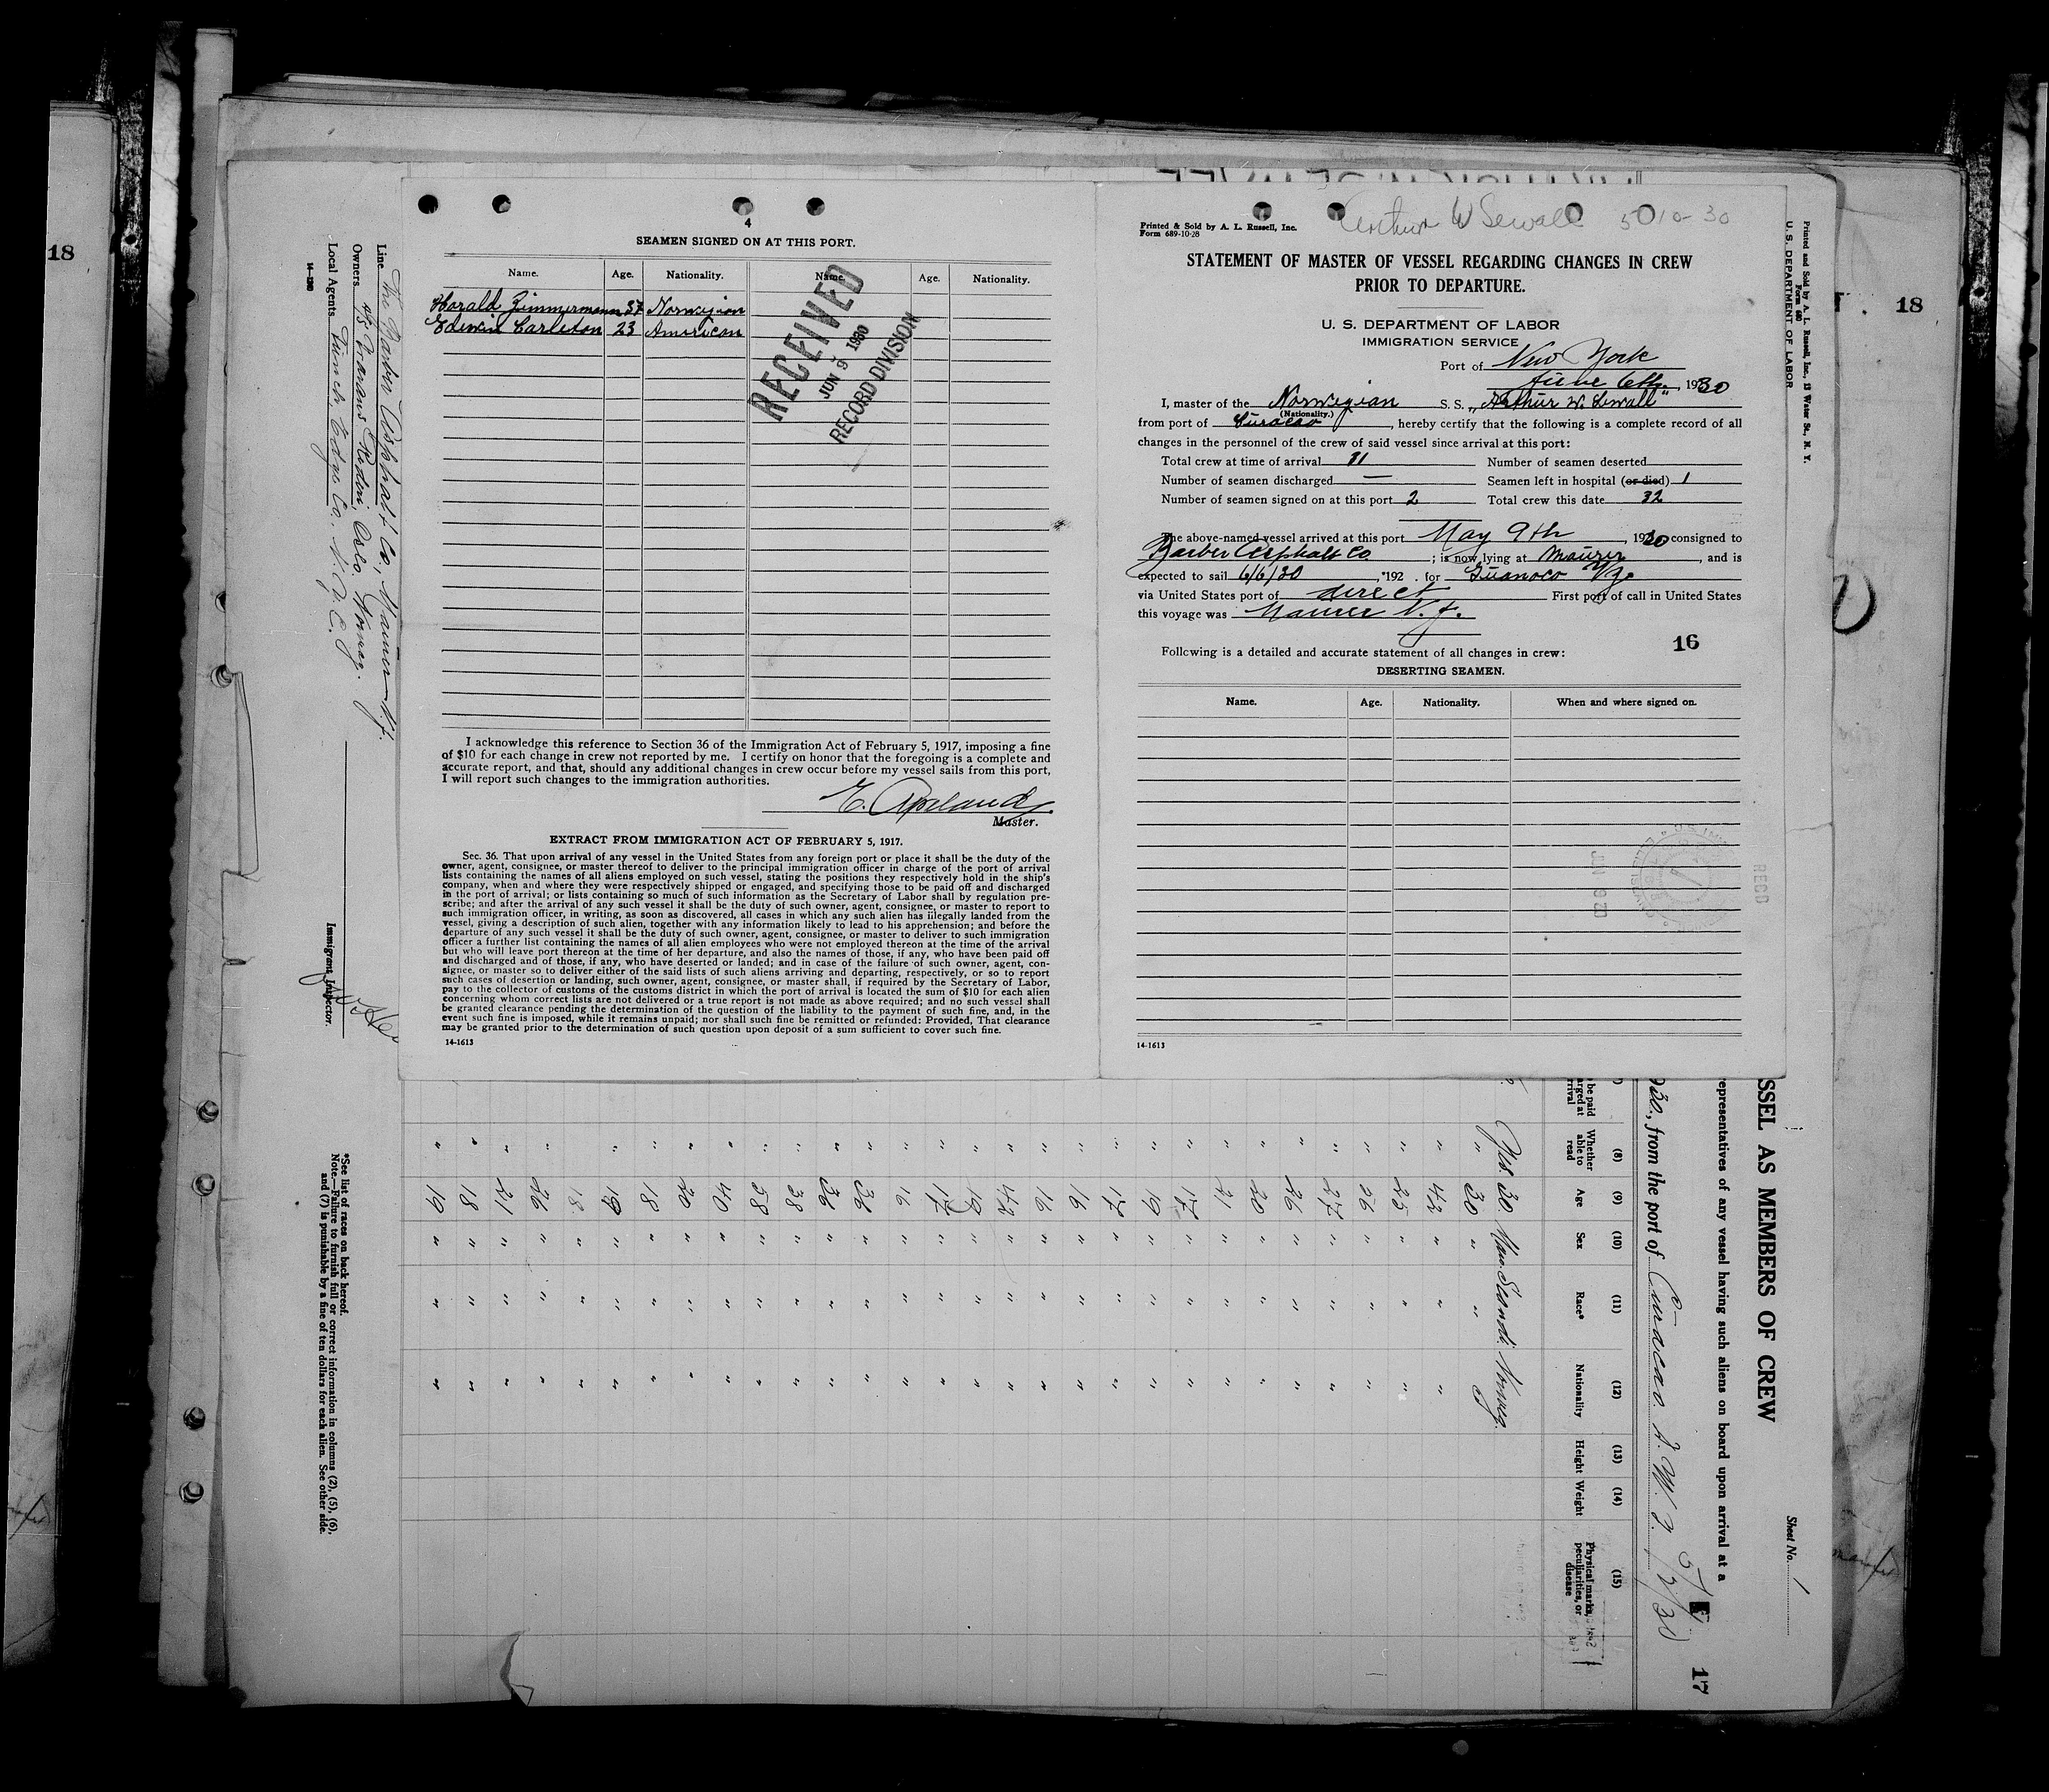 18
4
SEAMEN SIGNED ON AT THIS PORT.
Name. Age. Nationality. Name. Age. Nationality.
Harald Zimmermann 37 Norwegian
Edwin Carleton 23 American
RECEIVED
JUN 9 1930
RECORD DIVISION
I acknowledge this reference to Section 36 of the Immigration Act of February 5, 1917, imposing a fine
of $10 for each change in crew not reported by me. I certify on honor that the foregoing is a complete and
accurate report, and that, should any additional changes in crew occur before my vessel sails from this port,
I will report such changes to the immigration authorities.
Master.
EXTRACT FROM IMMIGRATION ACT OF FEBRUARY 5, 1917.
Sec. 36. That upon arrival of any vessel in the United States from any foreign port or place it shall be the duty of the
owner, agent, consignee, or master thereof to deliver to the principal immigration officer in charge of the port of arrival
lists containing the names of all aliens employed on such vessel, stating the positions they respectively hold in the ship's
company, when and where they were respectively shipped or engaged, and specifying those to be paid off and discharged
in the port of arrival; or lists containing so much of such information as the Secretary of Labor shall by regulation pre-
scribe; and after the arrival of any such vessel it shall be the duty of such owner, agent, consignee, or master to report to
such immigration officer, in writing, as soon as discovered, all cases in which any such alien has illegally landed from the
vessel, giving a description of such alien, together with any information likely to lead to his apprehension; and before the
departure of any such vessel it shall be the duty of such owner, agent, consignee, or master to deliver to such immigration
officer a further list containing the names of all alien employees who were not employed thereon at the time of the arrival
but who will leave port thereon at the time of her departure, and also the names of those, if any, who have been paid off
and discharged and of those, if any, who have deserted or landed; and in case of the failure of such owner, agent, con-
signee, or master so to deliver either of the said lists of such aliens arriving and departing, respectively, or so to report
such cases of desertion or landing, such owner, agent, consignee, or master shall, if required by the Secretary of Labor,
pay to the collector of customs of the customs district in which the port of arrival is located the sum of $10 for each alien
concerning whom correct lists are not delivered or a true report is not made as above required; and no such vessel shall
be granted clearance pending the determination of the question of the liability to the payment of such fine, and, in the
event such fine is imposed, while it remains unpaid; nor shall such fine be remitted or refunded: Provided, That clearance
may be granted prior to the determination of such question upon deposit of a sum sufficient to cover such fine.
14-1613
Arthur W Sewall 5 10-30
Printed & Sold by A. L. Russell, Inc.
Form 689-10-28
STATEMENT OF MASTER OF VESSEL REGARDING CHANGES IN CREW
PRIOR TO DEPARTURE.
U. S. DEPARTMENT OF LABOR
IMMIGRATION SERVICE
Port of New York
June 6th, 1930
I, master of the Norwegian S. S. "Arthur W. Sewall"
(Nationality.)
from port of Curacao, hereby certify that the following is a complete record of all
changes in the personnel of the crew of said vessel since arrival at this port:
Total crew at time of arrival 31 Number of seamen deserted
Number of seamen discharged — Seamen left in hospital (or died) 1
Number of seamen signed on at this port 2 Total crew this date 32
The above-named vessel arrived at this port May 9th, 1930 consigned to
Barber Asphalt Co; is now lying at Maurer, and is
expected to sail 6/6/30, 192 . for Guanoco Vz.
via United States port of direct First port of call in United States
this voyage was Maurer N. J.
16
Following is a detailed and accurate statement of all changes in crew:
DESERTING SEAMEN.
Name. Age. Nationality. When and where signed on.
REC'D
14-1613
18
Printed and Sold by A. L. Russell, Inc., 13 Water St., N. Y.
Form 680
U. S. DEPARTMENT OF LABOR
Sheet No. 1
SSEL AS MEMBERS OF CREW
epresentatives of any vessel having such aliens on board upon arrival at a
30., from the port of Curacao. D. W. I. 5/2/30
17
(8) (9) (10) (11) (12) (13) (14) (15)
be paid
arged at
rrival
Whether
able to
read
Age
Sex
Race*
Nationality
Height
Weight
Physical marks,
peculiarities, or
disease
Yes. 30. Man. Scandi. Norweg.
" 30 " " "
" 42 " " "
" 25 " " "
" 26 " " "
" 27 " " "
" 26 " " "
" 20 " " "
" 21 " " "
" 17 " " "
" 19 " " "
" 17 " " "
" 16 " " "
" 16 " " "
" 42 " " "
" 19 " " "
" 17 " " "
" 16 " " "
" 36 " " "
" 36 " " "
" 38 " " "
" 58 " " "
" 40 " " "
" 20 " " "
" 18 " " "
" 19 " " "
18 " " "
" 26 " " "
" 21 " " "
" 18 " " "
" 19 " " "
Line The Barber Asphalt Co., Maurer N.J.
Owners
Oslo. Norway.
Local Agents Funch, Edye Co. N. Y. C.
14-1240
Immigrant Inspector.
*See list of races on back hereof.
Note.—Failure to furnish full or correct information in columns (2), (5), (6),
and (7) is punishable by a fine of ten dollars for each alien. See other side.